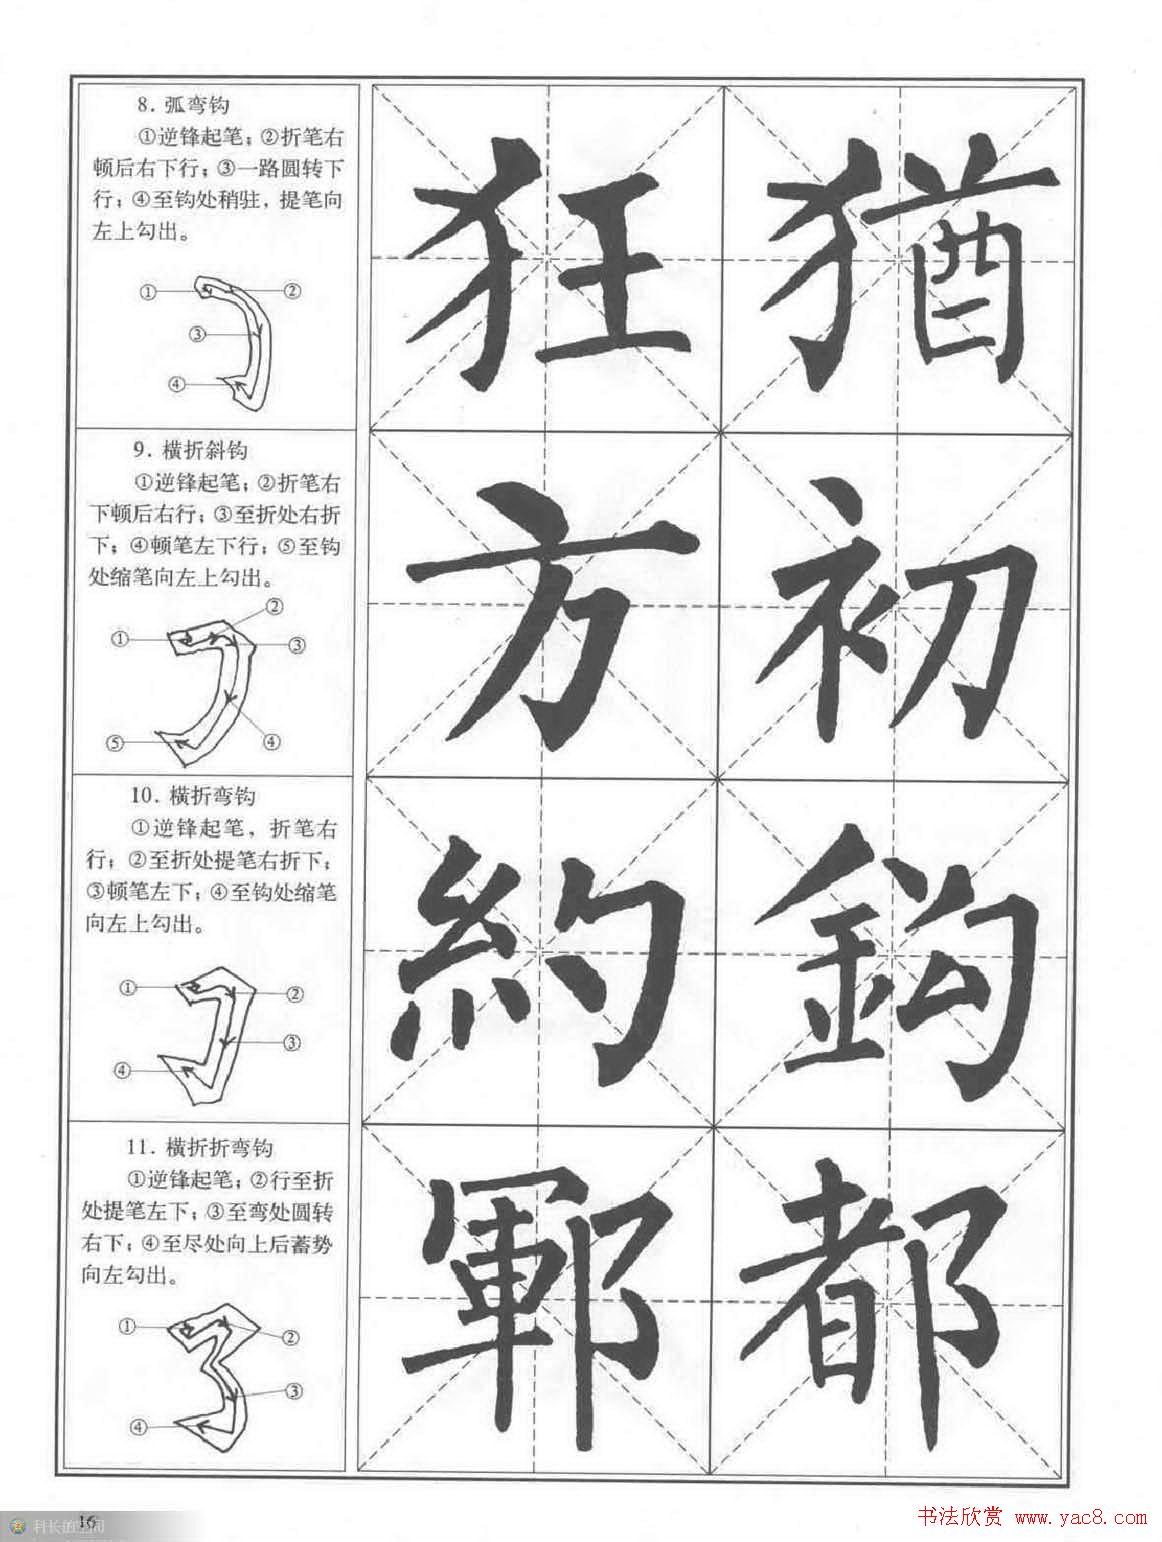 8. 弧弯钩
①逆锋起笔；②折笔右
顿后右下行；③一路圆转下
行；④至钩处稍驻，提笔向
左上勾出。
① ②
③
④
狂 猶
9. 横折斜钩
①逆锋起笔；②折笔右
下顿后右行；③至折处右折
下；④顿笔左下行；⑤至钩
处缩笔向左上勾出。
②
① ③
⑤ ④
方 初
10. 横折弯钩
①逆锋起笔，折笔右
行；②至折处提笔右折下；
③顿笔左下；④至钩处缩笔
向左上勾出。
① ②
③
④
約 鈎
11. 横折折弯钩
①逆锋起笔；②行至折
处提笔左下；③至弯处圆转
右下；④至尽处向上后蓄势
向左勾出。
① ②
③
④
鄆 都
16
书法欣赏 www.yac8.com